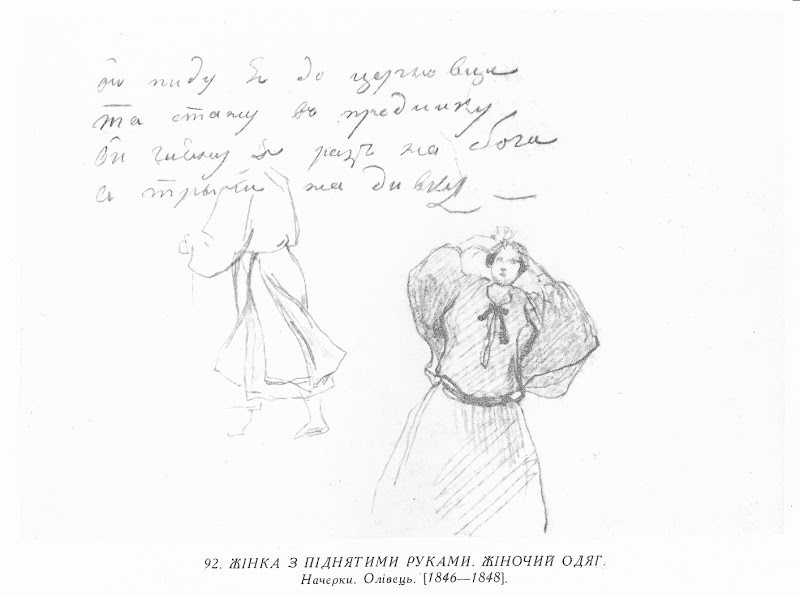 ой пиду я до церковци
та стану въ прединку
ой гляну я разъ на бога
а трычи на дивку —
92. ЖІНКА З ПІДНЯТИМИ РУКАМИ. ЖІНОЧИЙ ОДЯГ.
Начерки. Олівець. [1846—1848].